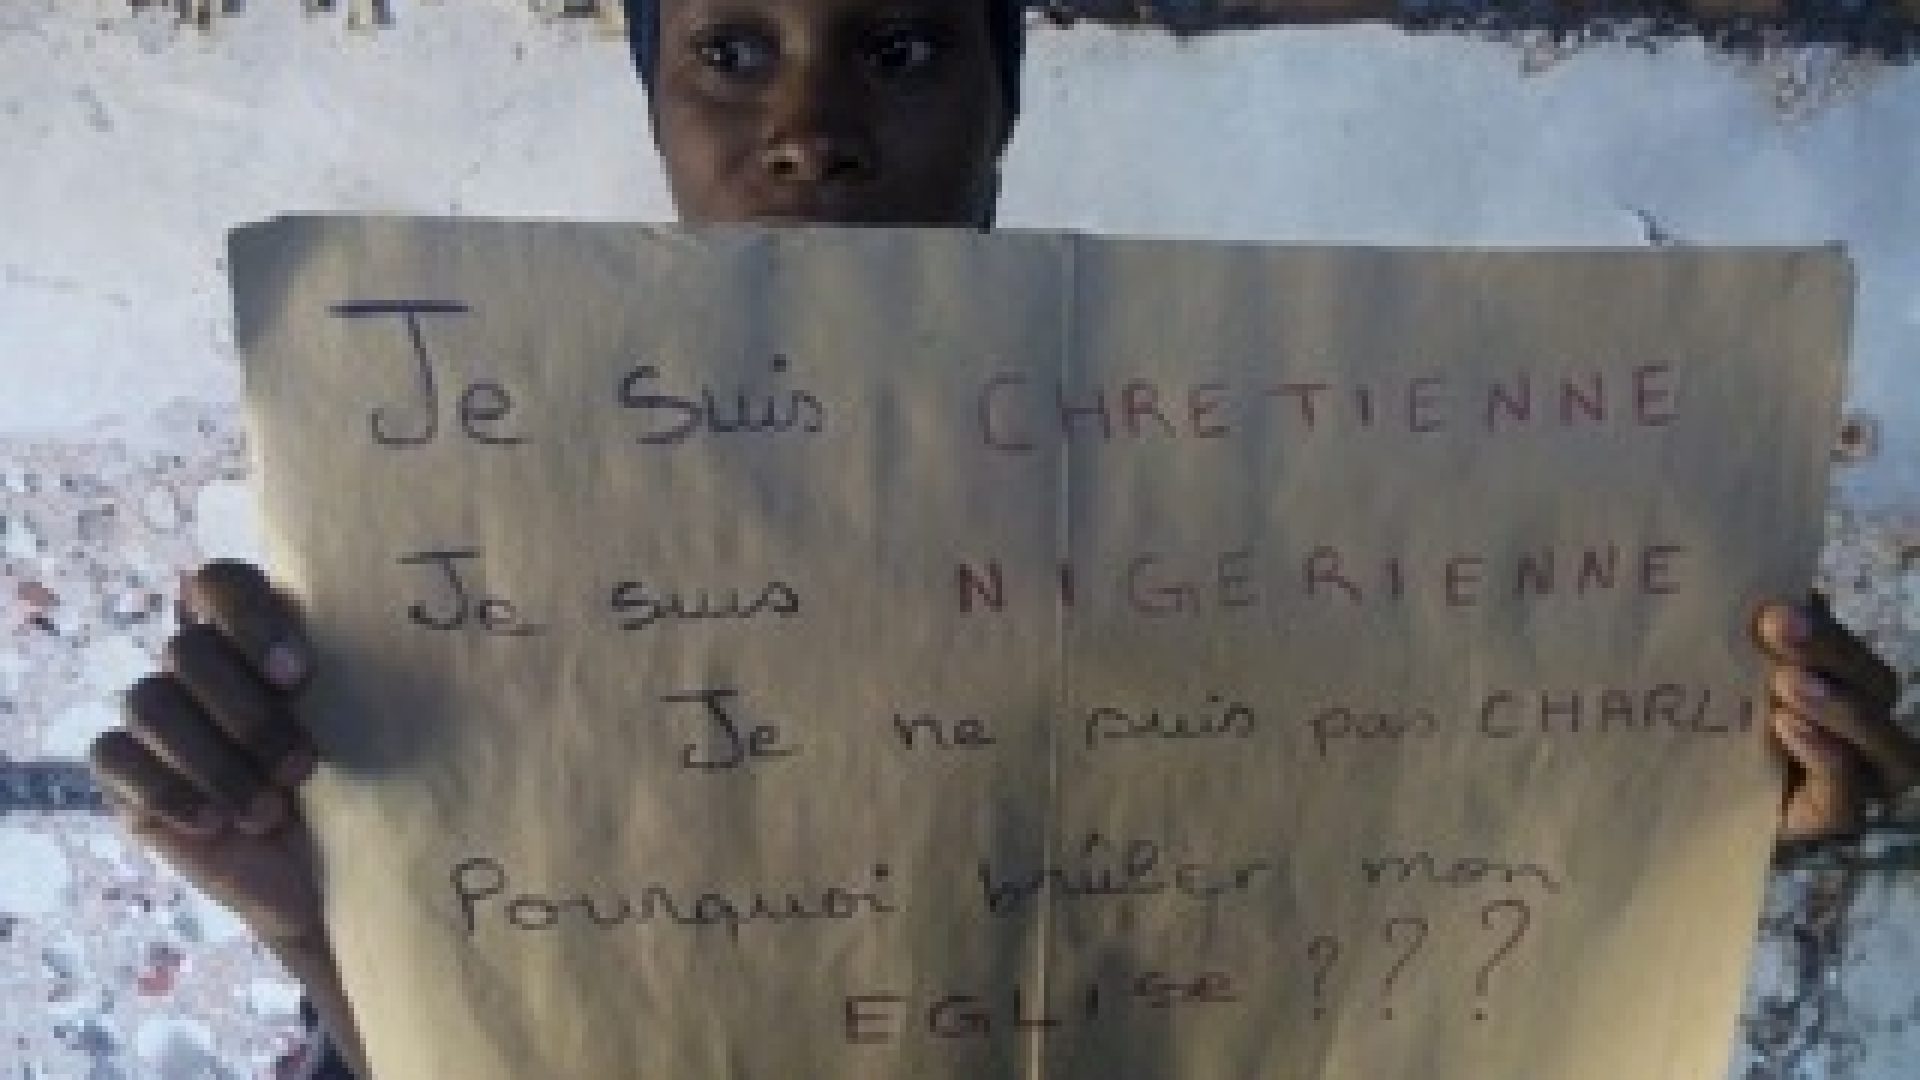 Je suis CHRETIENNE
Je suis NIGERIENNE
Je ne suis pas CHARLI
Pourquoi brûler mon
EGLISe ???